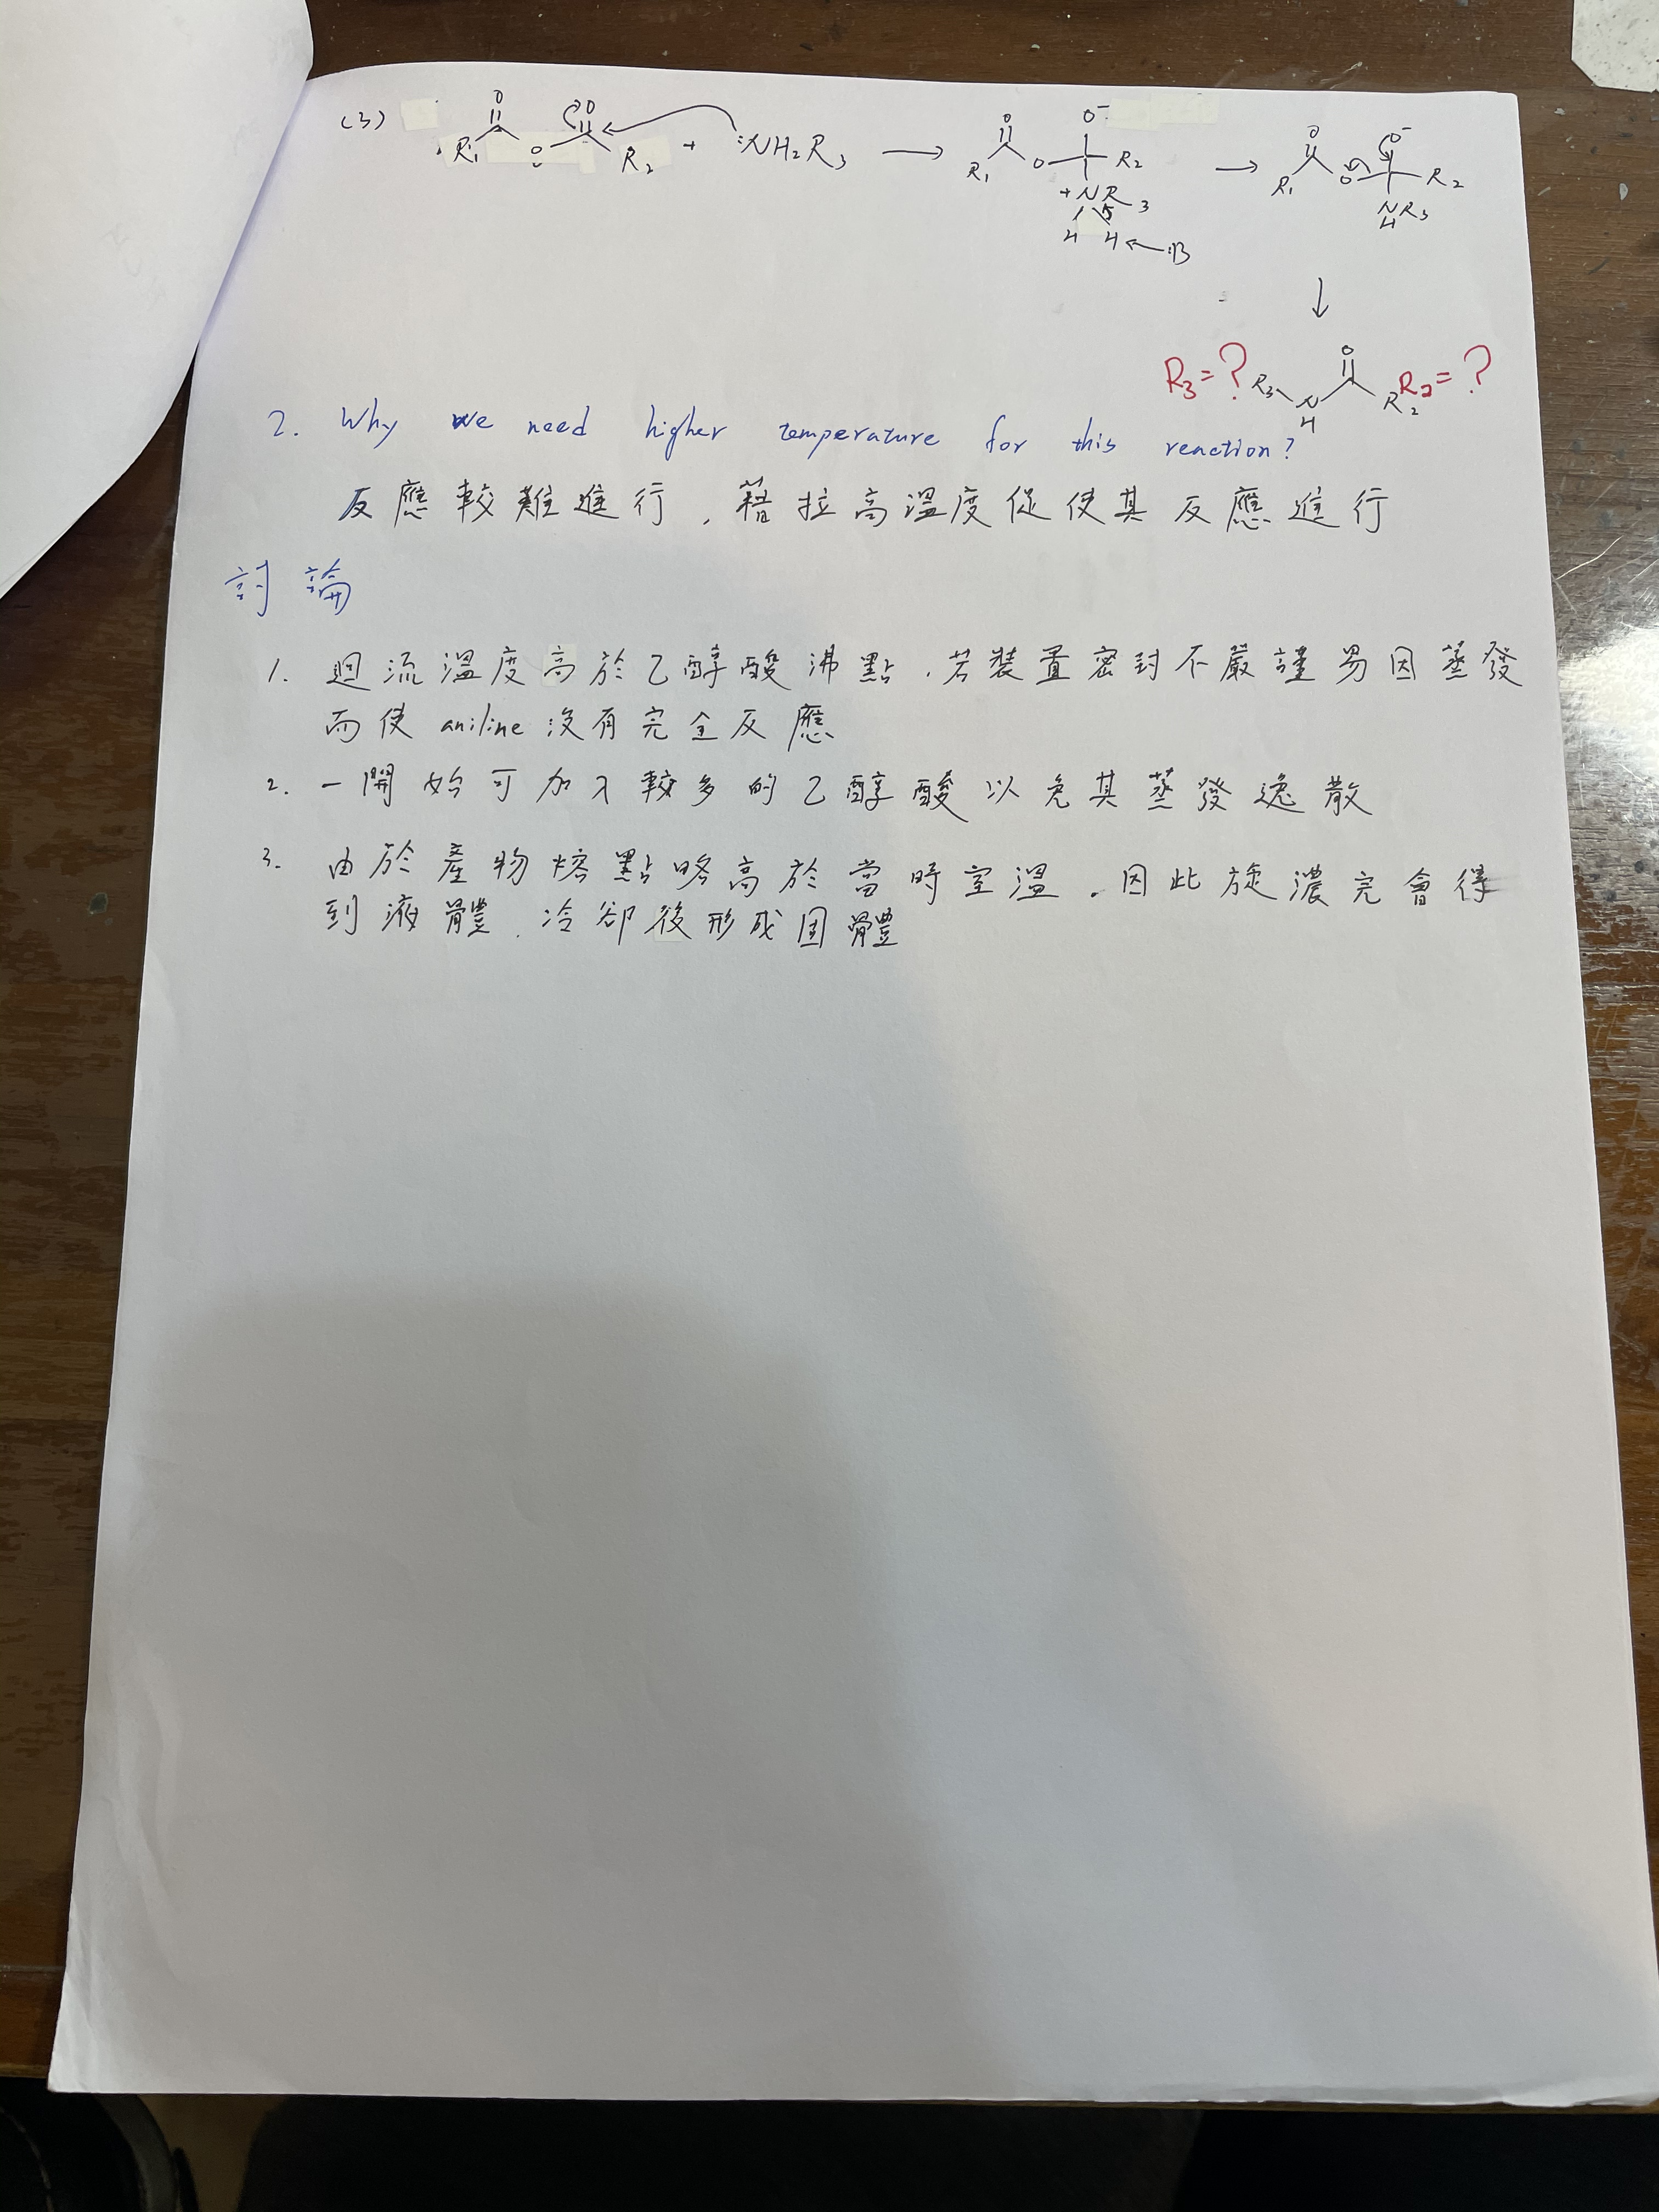 (3) R₁ O O O R₂ + :NH₂R₃ → R₁ O O O⁻ R₂ +NR₃ H H ← :B → R₁ O O O⁻ R₂ NR₃ H
↓
R₃=? R₃ N H O R₂ R₂=?
2. Why we need higher temperature for this reaction?
反應較難進行，藉拉高溫度促使其反應進行
討論
1. 迴流溫度高於乙醇酸沸點，若裝置密封不嚴謹易因蒸發
而使 aniline 沒有完全反應
2. 一開始可加入較多的乙醇酸以免其蒸發逸散
3. 由於產物熔點略高於當時室溫，因此旋濃完會得
到液體，冷卻後形成固體